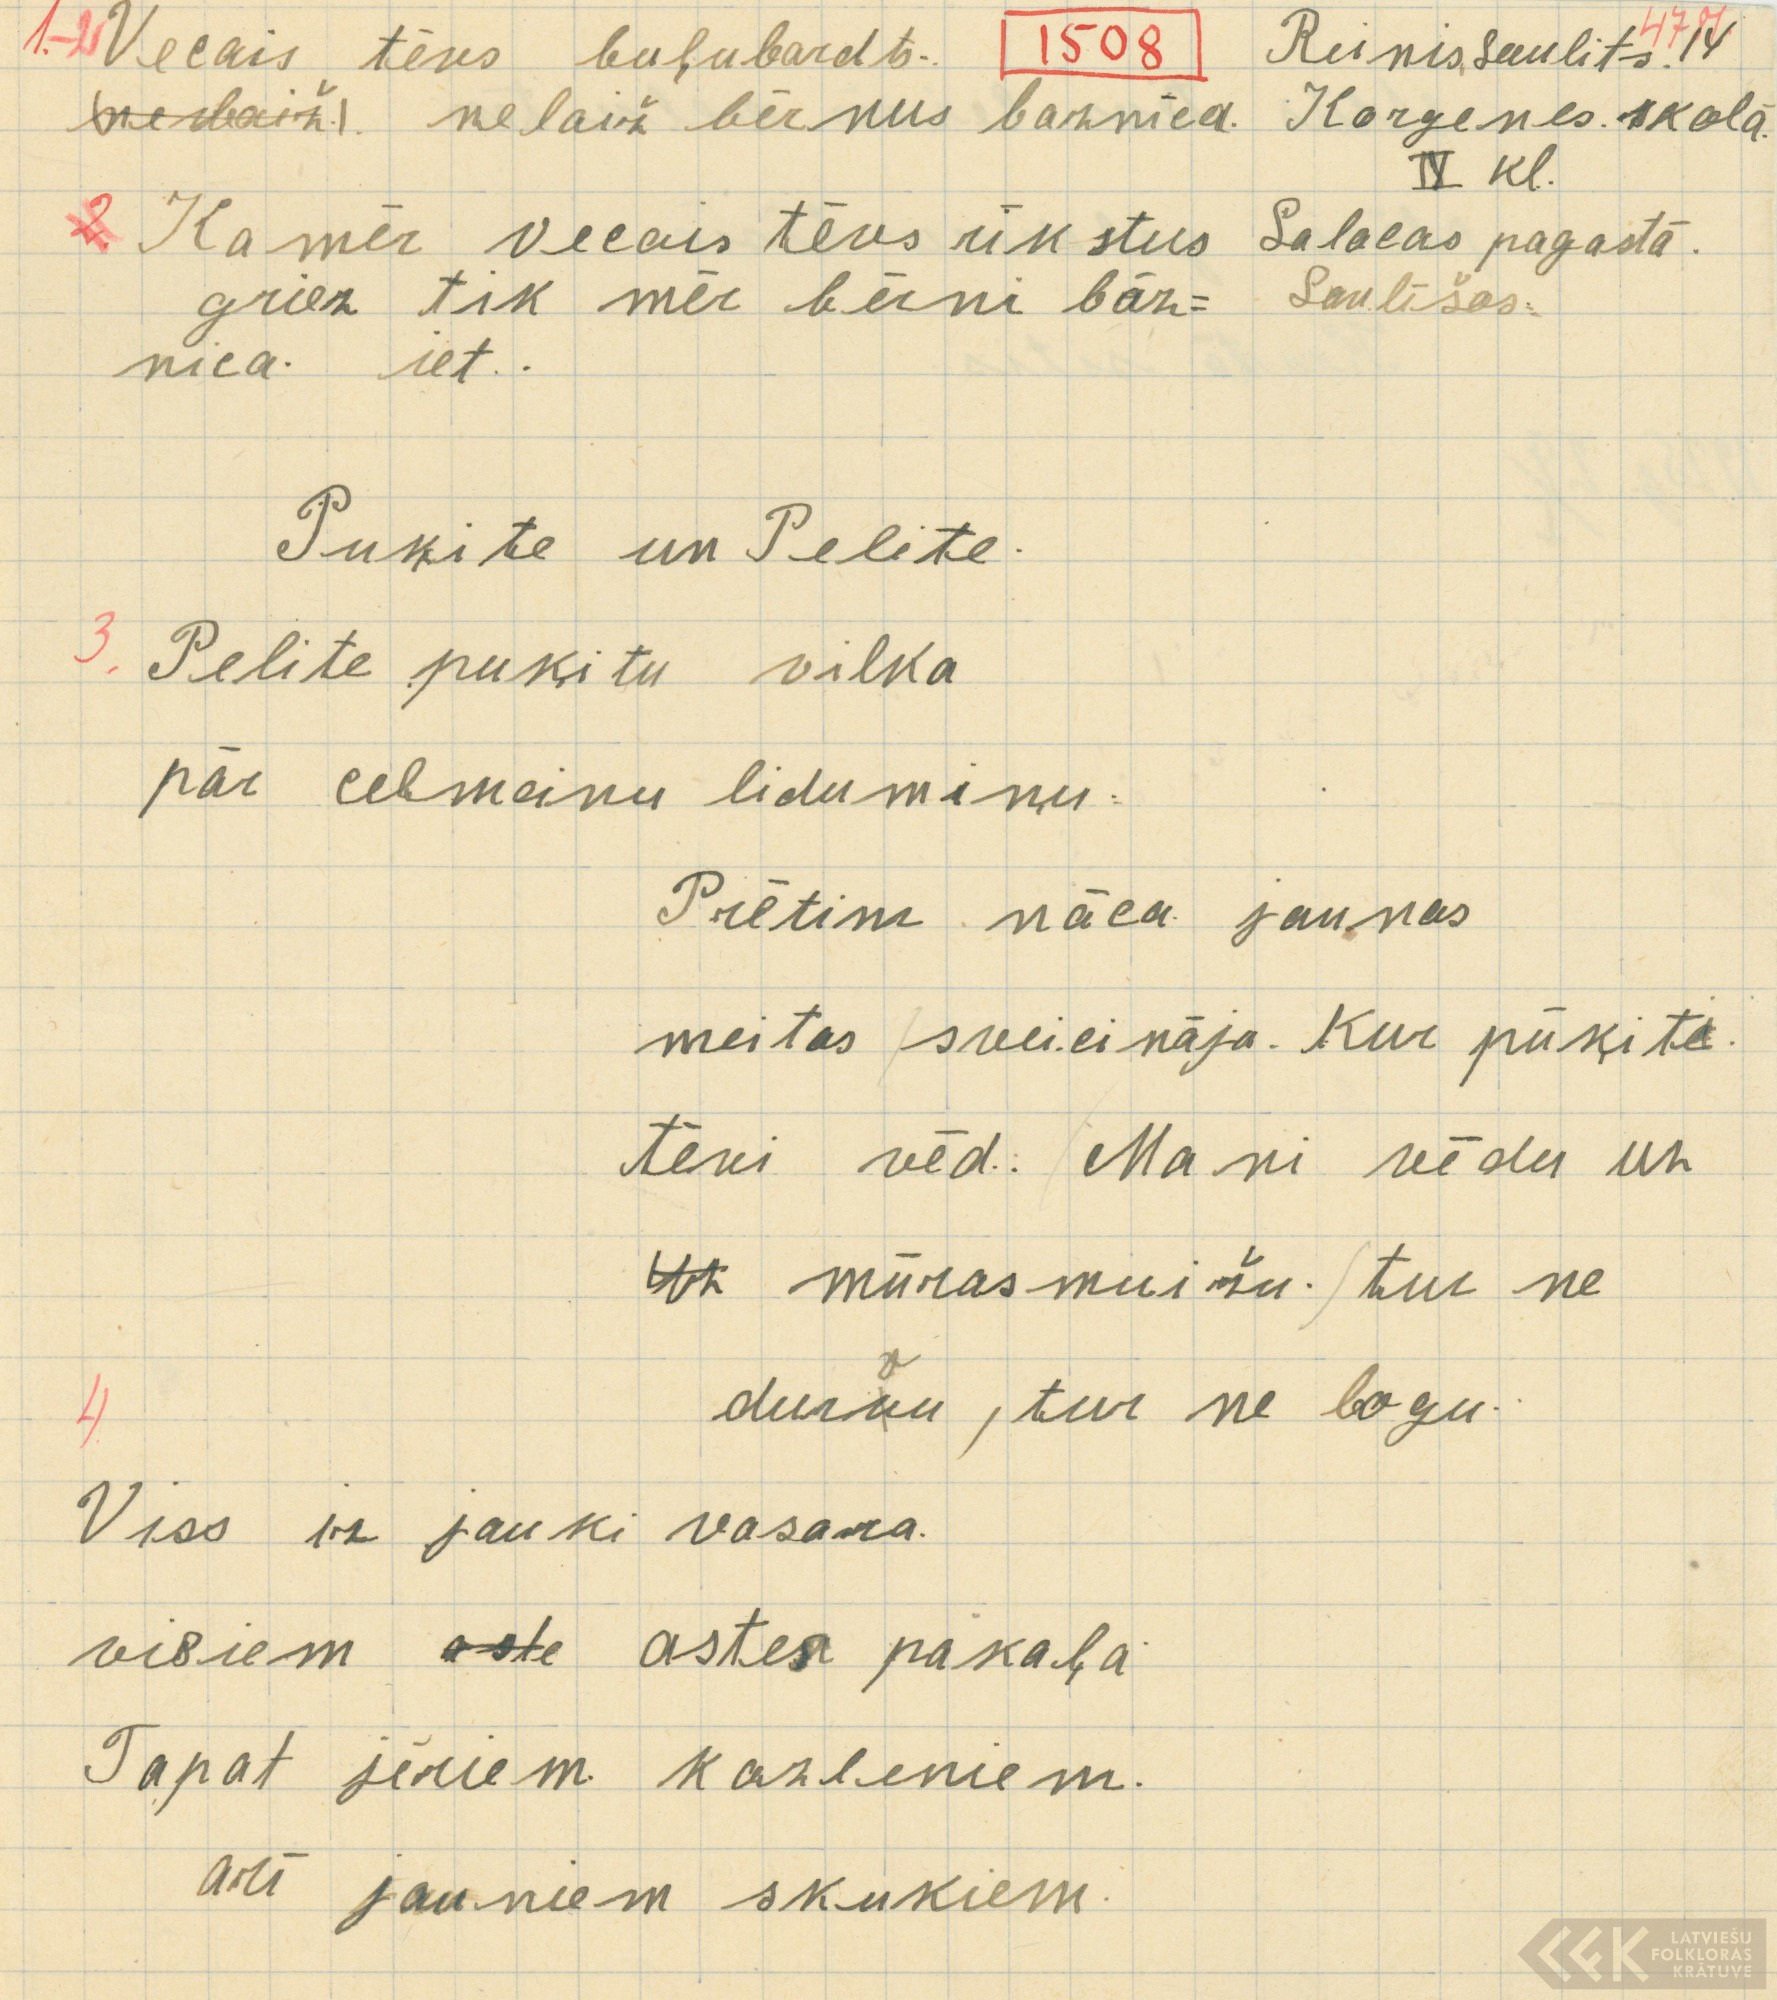 1.-2 Vecais tēvs buļubardts. 1508 Reinis Saulits. 14
nelaiž bērnus baznica. Korgenes skolā.
IV kl.
2. Kamēr vecais tēvs rīkstus Salacas pagastā.
griez tik mēr bērni bāz= Saulīšos.
nica. iet..
Puķite un Pelite.
3. Pelite puķitu vilka
pār celmainu lidumiņu.
Prētim nāca jaunas
meitas / sveicināja. Kur pūķite.
tēvi vēd. / Mani vēdu uz
Uz mūrasmuižu. / tur ne
durvu, tur ne logu.
4
Viss ir jauki vasara.
visiem aste astes pakaļa
Tapat jēriem kazleniem.
arī jauniem skukiem.
LATVIEŠU
FOLKLORAS
KRĀTUVE